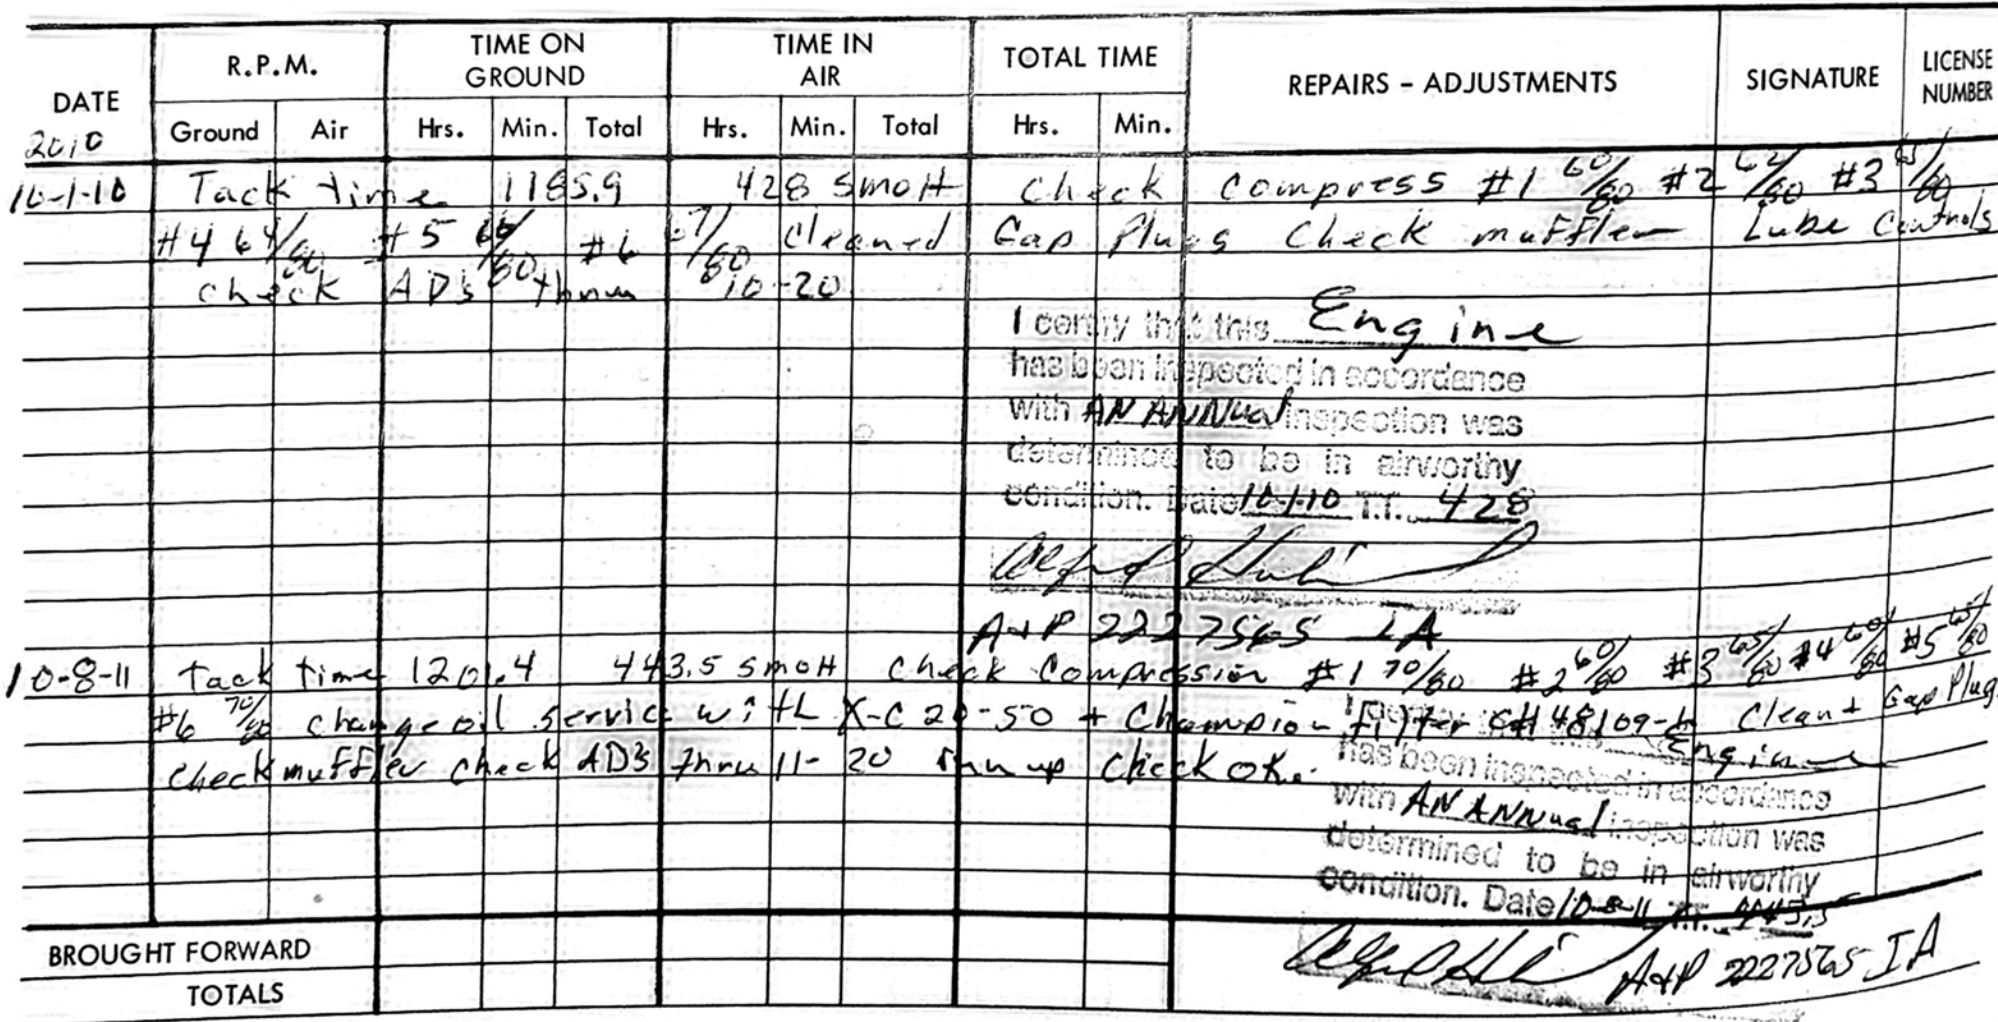 DATE R.P.M. TIME ON GROUND TIME IN AIR TOTAL TIME REPAIRS - ADJUSTMENTS SIGNATURE LICENSE NUMBER
2010 Ground Air Hrs. Min. Total Hrs. Min. Total Hrs. Min.
10-1-10 Tack time 1185.9 428 SMOH Check Compress #1 60/80 #2 62/80 #3 65/80
#4 64/80 #5 66/80 #6 67/80 Cleaned Gap Plugs Check muffler Lube Controls
Check ADs thru 10-20
I certify that this Engine
has been inspected in accordance
with AN ANNual inspection was
determined to be in airworthy
condition. Date 10-1-10 T.T. 428
Alfred
A+P 2227565 IA
10-8-11 Tack time 1201.4 443.5 SMOH Check Compression #1 70/80 #2 60/80 #3 65/80 #4 60/80 #5 65/80
#6 70/80 change oil service with X-C 20-50 + Champion filter CH48109-1 Clean + Gap Plugs
Check muffler check ADs thru 11-20 run up check ok.
Engine
has been inspected in accordance
with AN ANNual inspection was
determined to be in airworthy
condition. Date 10-8-11 T.T. 443.5
A+P 2227565 IA
BROUGHT FORWARD
TOTALS